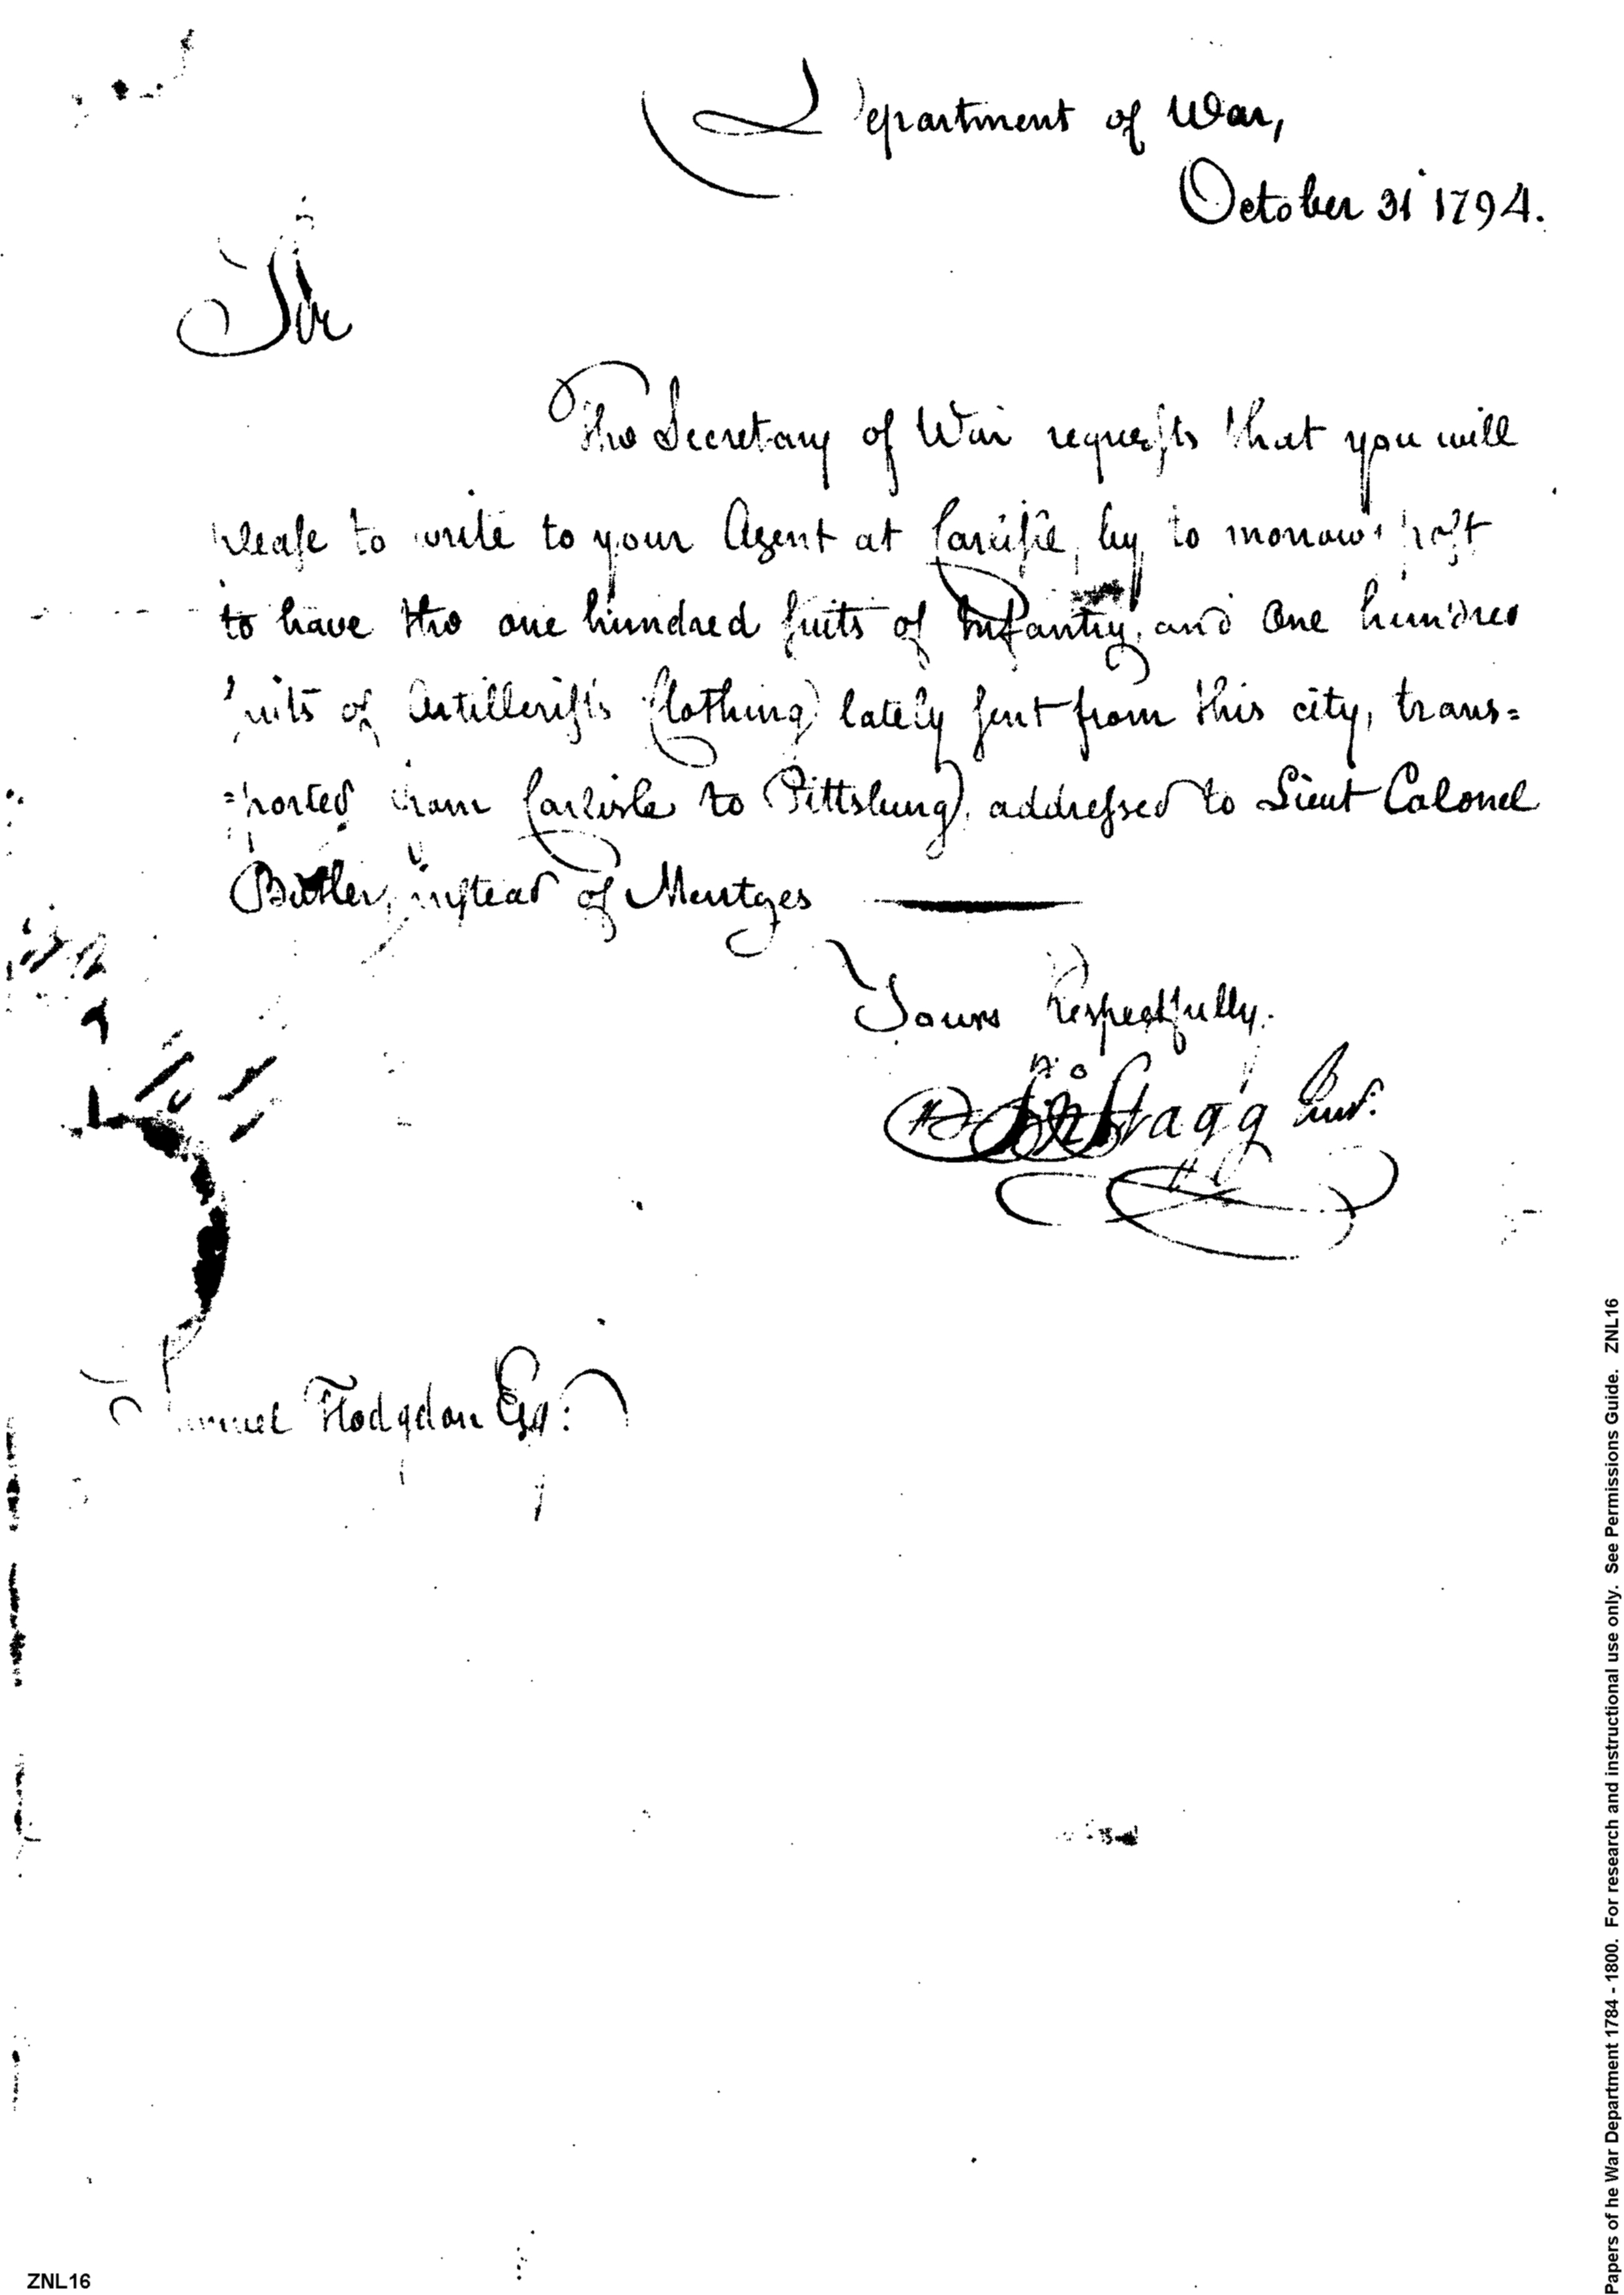 Department of War,
October 31 1794.
Sir
The Secretary of War requests that you will
please to write to your Agent at Carlisle, by to morrows post
to have the one hundred suits of Infantry, and One hundred
suits of Artillerists Clothing lately sent from this city, trans=
=ported from Carlisle to Pittsburg, addressed to Lieut Colonel
Butler, instead of Mentges
Yours Respectfully.
Jno Stagg Junr.
Samuel Hodgdon Esq:
ZNL16
Papers of he War Department 1784 - 1800. For research and instructional use only. See Permissions Guide. ZNL16